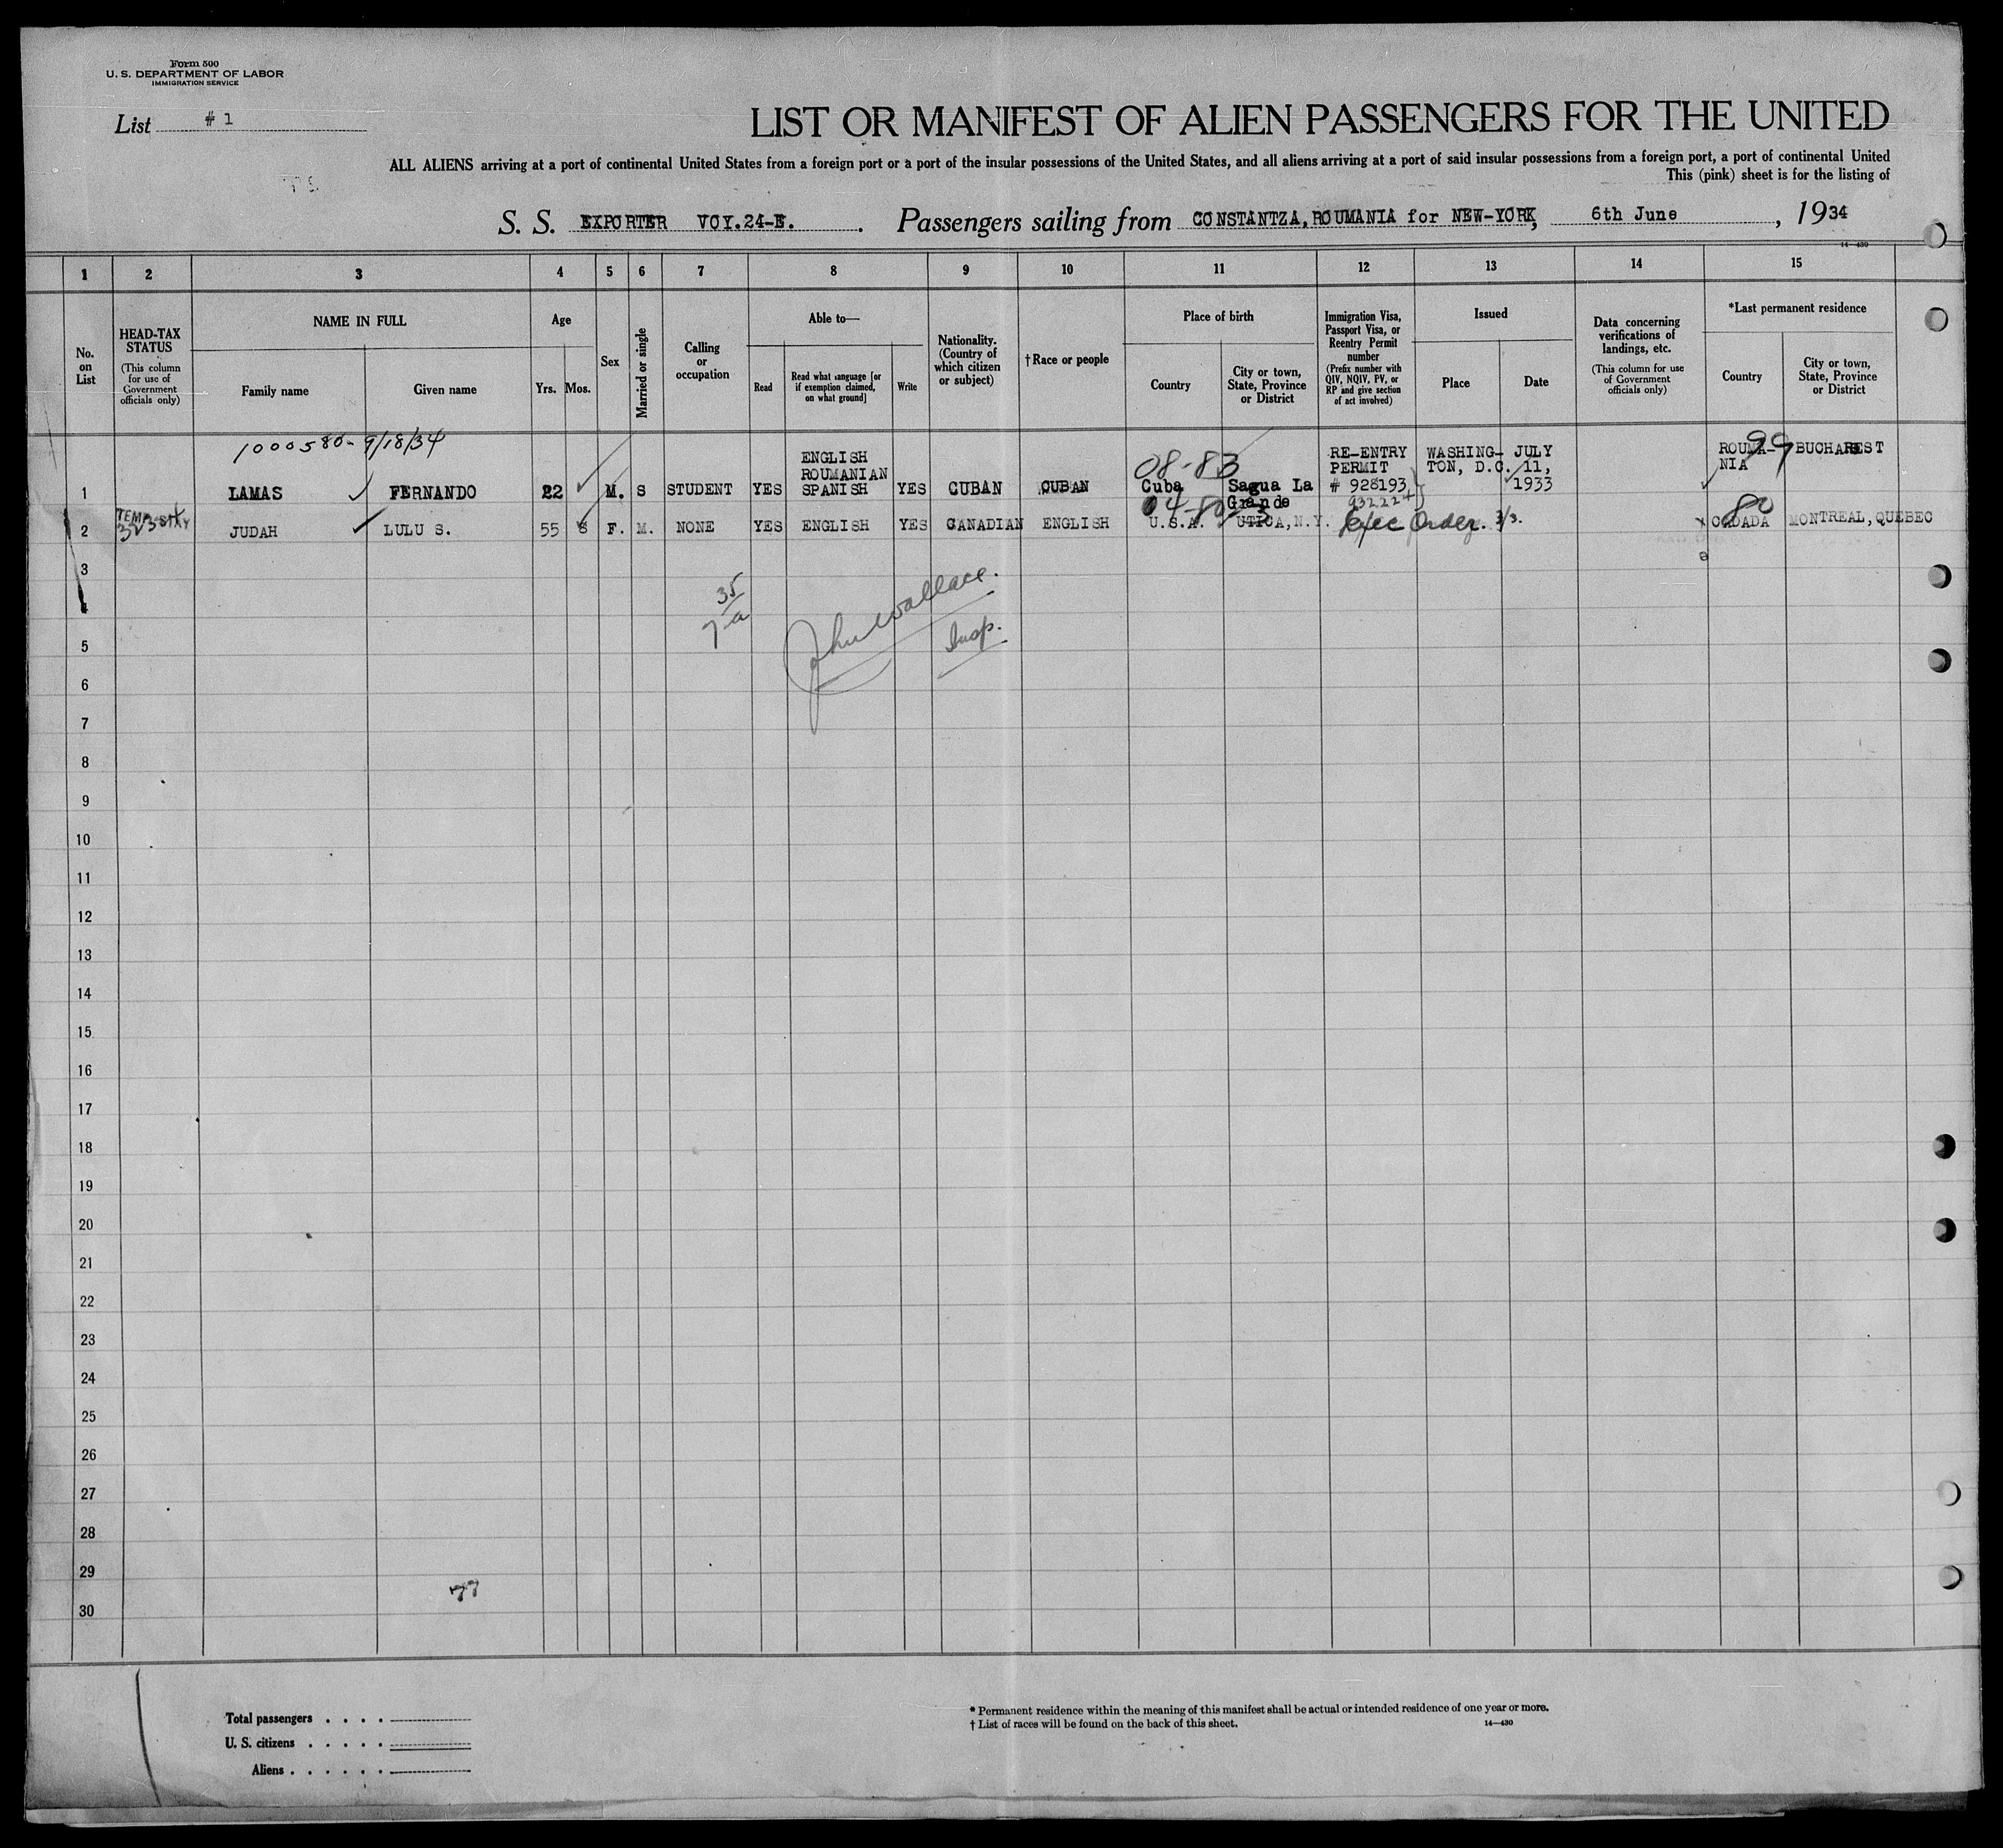 Form 500
U. S. DEPARTMENT OF LABOR
IMMIGRATION SERVICE
List # 1
LIST OR MANIFEST OF ALIEN PASSENGERS FOR THE UNITED
ALL ALIENS arriving at a port of continental United States from a foreign port or a port of the insular possessions of the United States, and all aliens arriving at a port of said insular possessions from a foreign port, a port of continental United
This (pink) sheet is for the listing of
S. S. EXPORTER VOY.24-E. Passengers sailing from CONSTANTZA, ROUMANIA for NEW-YORK, 6th June, 1934
14—430
1 2 3 4 5 6 7 8 9 10 11 12 13 14 15
No. on List
HEAD-TAX STATUS
(This column for use of Government officials only)
NAME IN FULL
Family name
Given name
Age
Yrs.
Mos.
Sex
Married or single
Calling or occupation
Able to—
Read
Read what language [or if exemption claimed, on what ground]
Write
Nationality. (Country of which citizen or subject)
†Race or people
Place of birth
Country
City or town, State, Province or District
Immigration Visa, Passport Visa, or Reentry Permit number
(Prefix number with QIV, NQIV, PV, or RP and give section of act involved)
Issued
Place
Date
Data concerning verifications of landings, etc.
(This column for use of Government officials only)
*Last permanent residence
Country
City or town, State, Province or District
1000580- 9/18/34
08-83
99
1 LAMAS FERNANDO 22 M. S STUDENT YES ENGLISH ROUMANIAN SPANISH YES CUBAN CUBAN Cuba Sagua La Grande RE-ENTRY PERMIT # 928193 WASHING-TON, D.C. JULY 11, 1933 ROUMA-NIA BUCHAREST
932224
80
2 JUDAH LULU S. 55 8 F. M. NONE YES ENGLISH YES CANADIAN ENGLISH U.S.A. UTICA, N.Y. Exec Order. CADADA MONTREAL, QUEBEC
3
4
35
7 a
John Wallace.
Insp.
5
6
7
8
9
10
11
12
13
14
15
16
17
18
19
20
21
22
23
24
25
26
27
28
29
77
30
Total passengers . . . .
U. S. citizens . . . . .
Aliens . . . . . .
* Permanent residence within the meaning of this manifest shall be actual or intended residence of one year or more.
† List of races will be found on the back of this sheet.
14—430